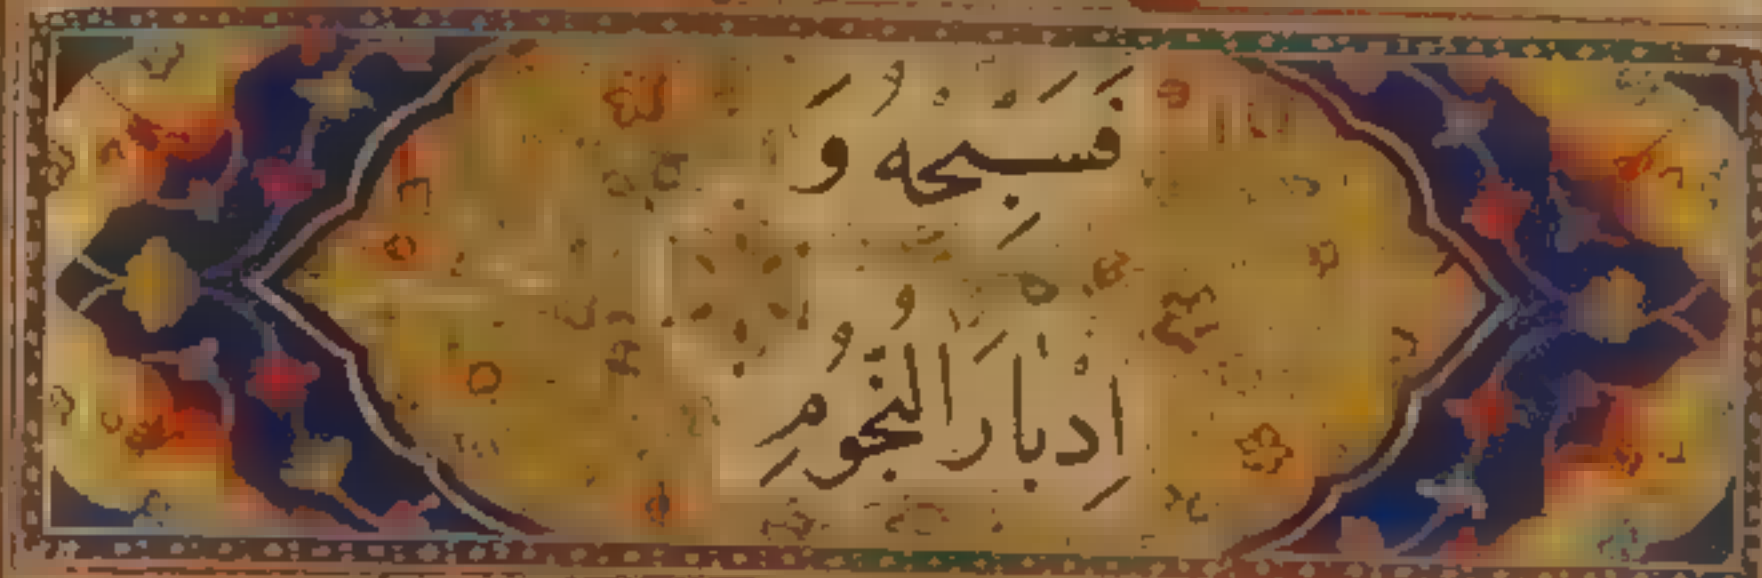 فَسَبِّحْهُ وَ
اِدْبَارَ النُّجُومِ